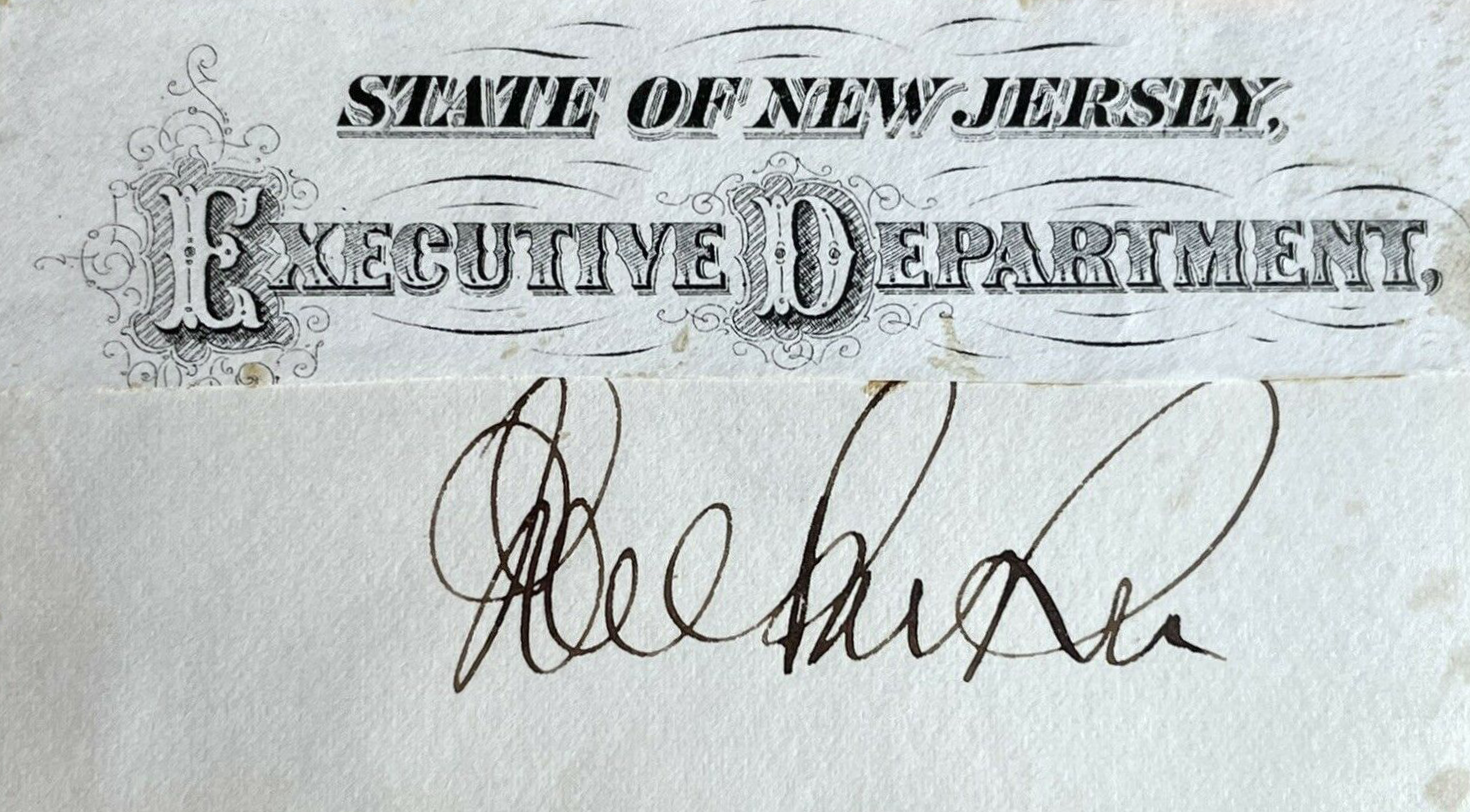 STATE OF NEW JERSEY,
EXECUTIVE DEPARTMENT,
Joel Parker